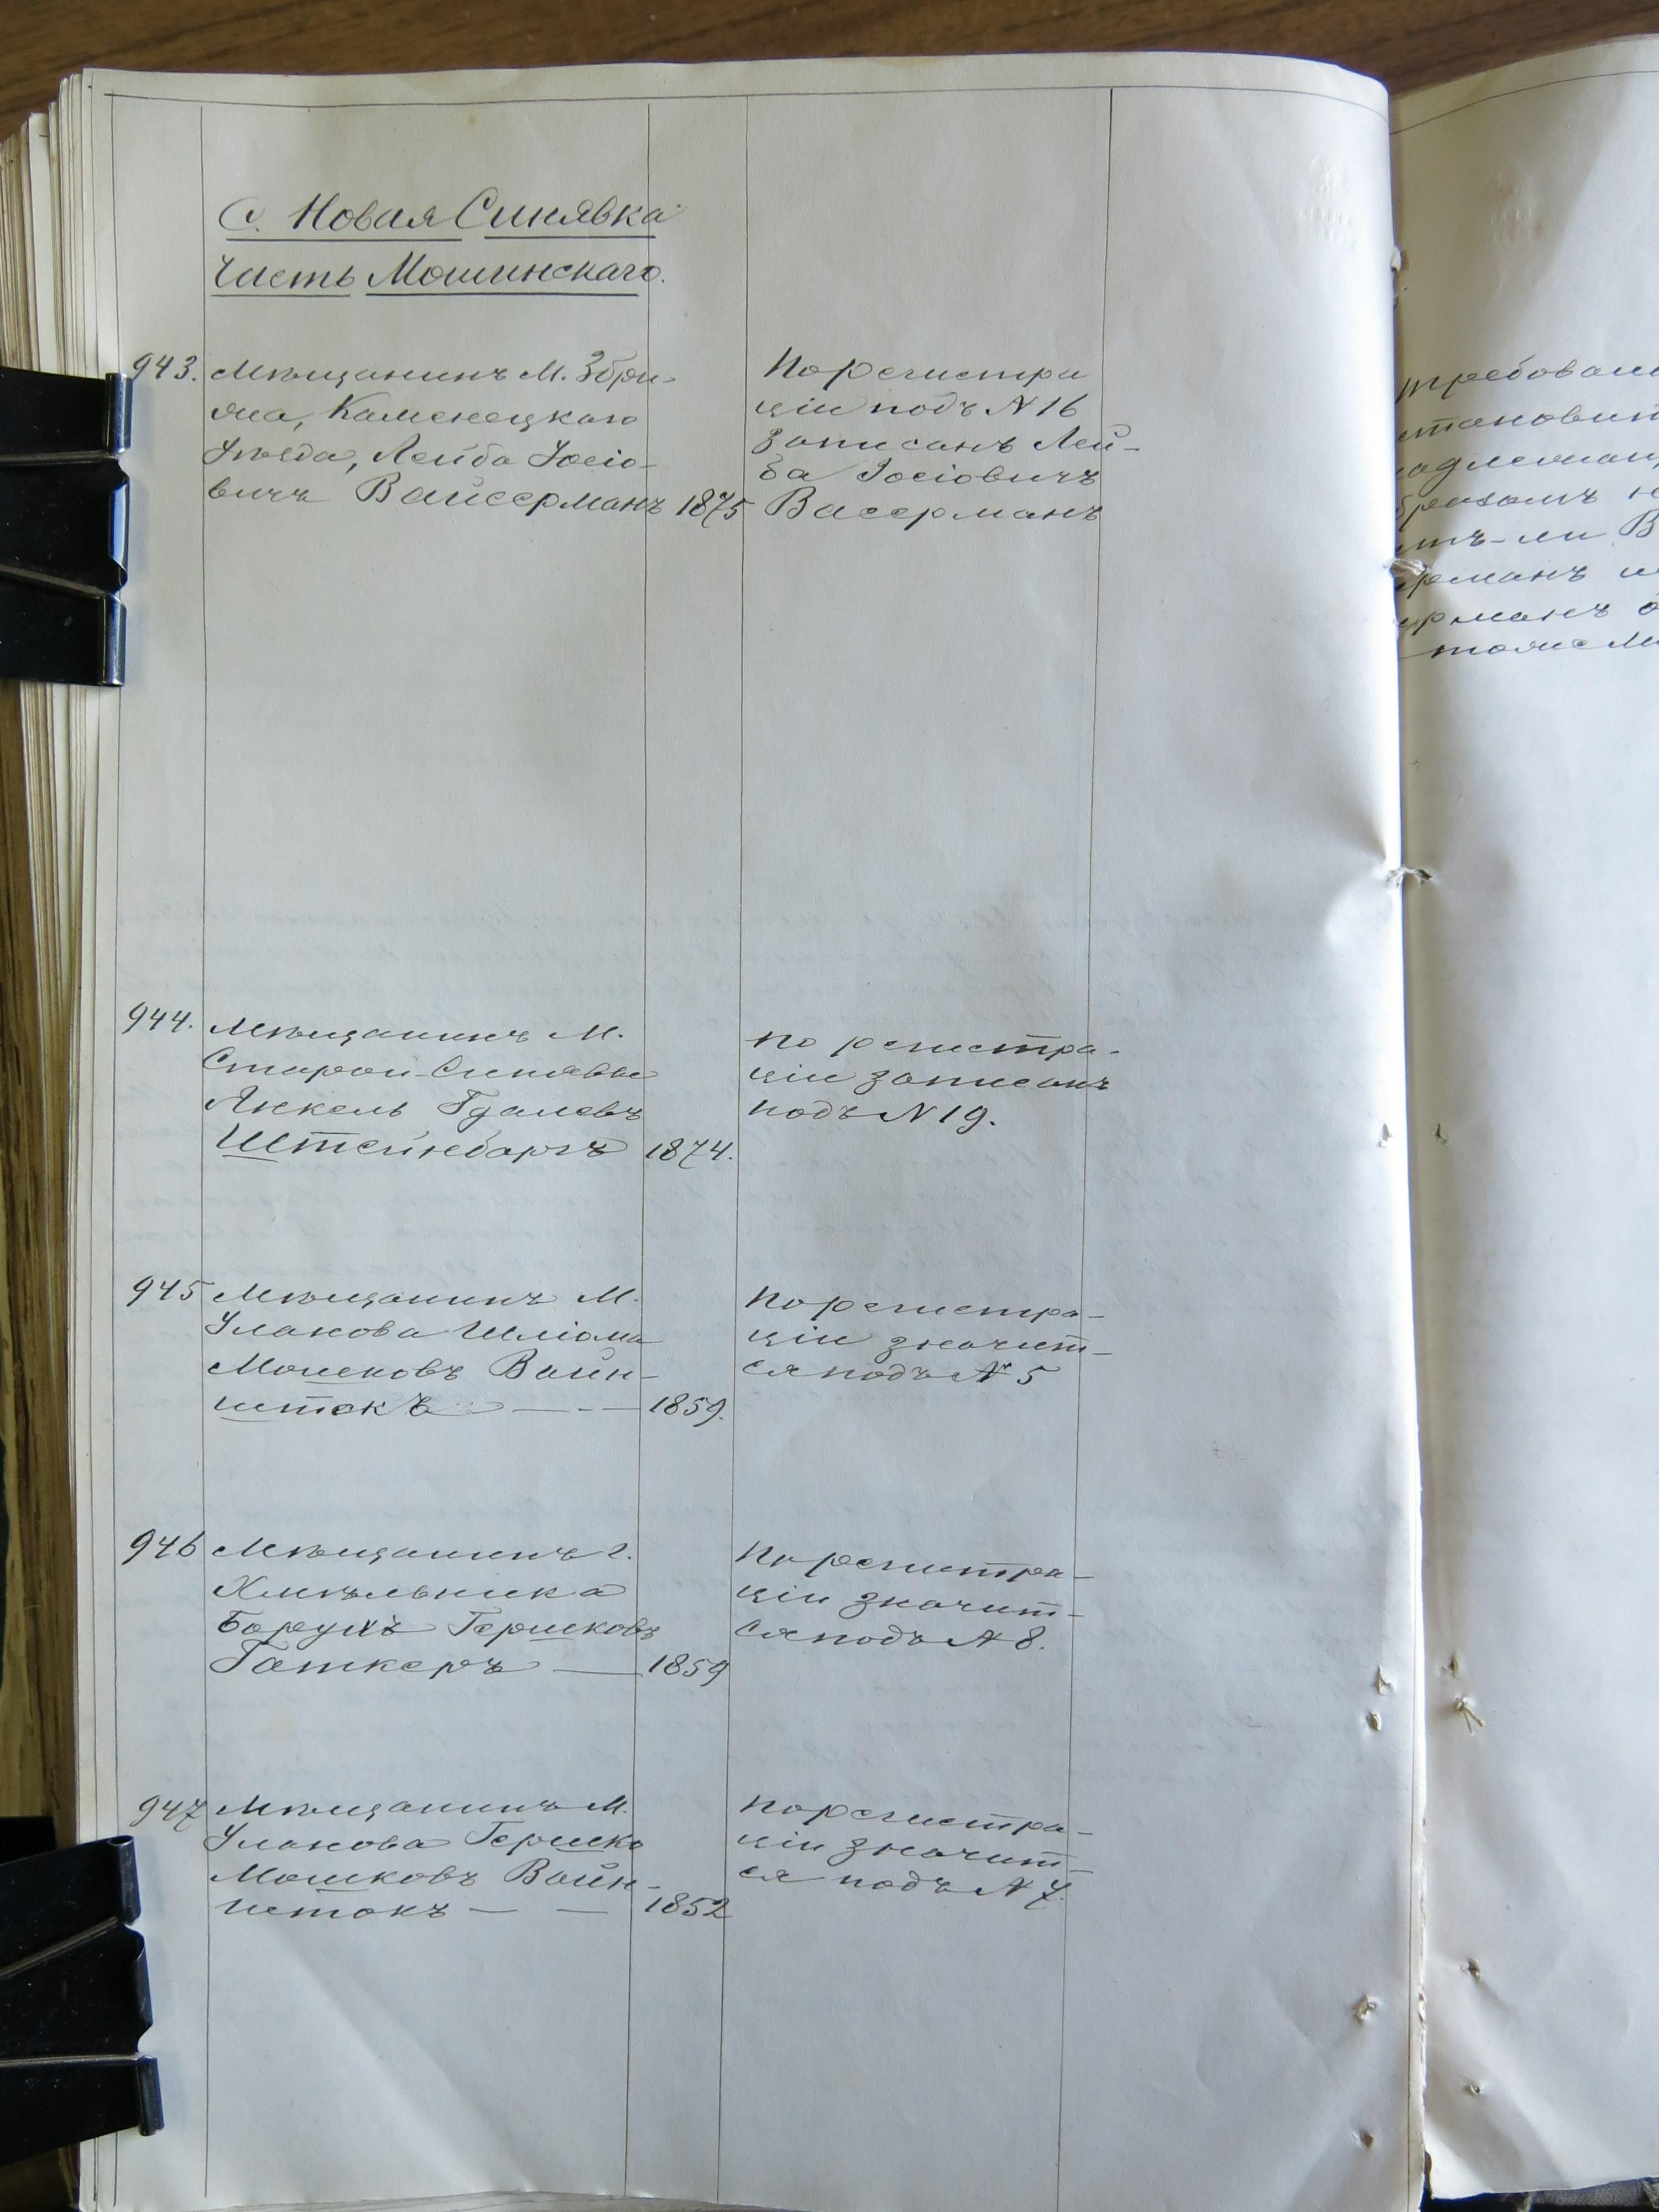 С. Новая Синявка
часть Мошинскаго.
943. Мѣщанинъ М. Збри-
жа, Каменецкаго
Уѣзда, Лейба Іосіо-
вичъ Вайсерманъ 1875
По регистра
ціи подъ № 16
записанъ Лей-
ба Іосіовичъ
Васерманъ
944. Мѣщанинъ М.
Старой-Синявы
Янкель Гдалевъ
Штейнбаргъ 1874.
по регистра-
ціи записанъ
подъ № 19.
945 Мѣщанинъ М.
Уланова Шліома
Мошковъ Вайн-
штокъ — - - 1859.
По регистра-
ціи значит-
ся подъ № 5
946 Мѣщанинъ г.
Хмѣльника
Борухъ Гершковъ
Гаткеръ — 1859
По регистра-
ціи значит-
ся подъ № 8.
947 Мѣщанинъ М.
Уланова Гершко
Мошковъ Вайн-
штокъ — — 1852
По регистра-
ціи значит-
ся подъ № 7.
требовани
становит
бразомъ
итъ-ли В
рманъ и
ерманъ
тоже